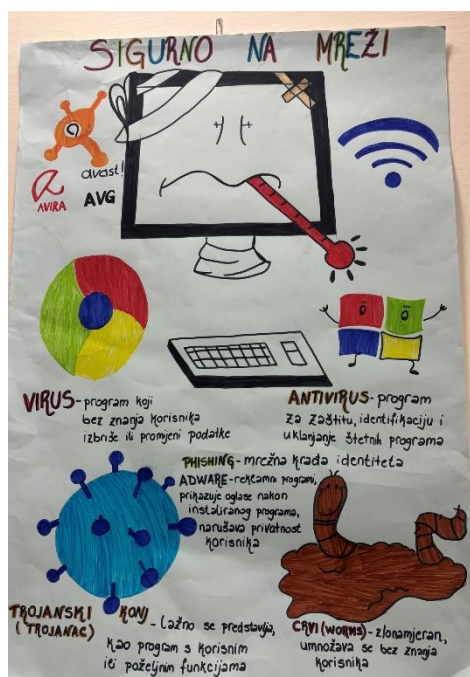 SIGURNO NA MREŽI
avast!
AVIRA
AVG
VIRUS - program koji
bez znanja korisnika
izbriše ili promjeni podatke
ANTIVIRUS - program
za zaštitu, identifikaciju i
uklanjanje štetnik programa
PHISHING - mrežna krađa identiteta
ADWARE - reklamni programi,
prikazuje oglase nakon
instaliranog programa,
narušava privatnost
korisnika
TROJANSKI KONJ
(TROJANAC)
- Lažno se predstavlja,
kao program s korisnim
ili poželjnim funkcijama
CRVI (WORMS) - zlonamjeran,
umnožava se bez znanja
korisnika